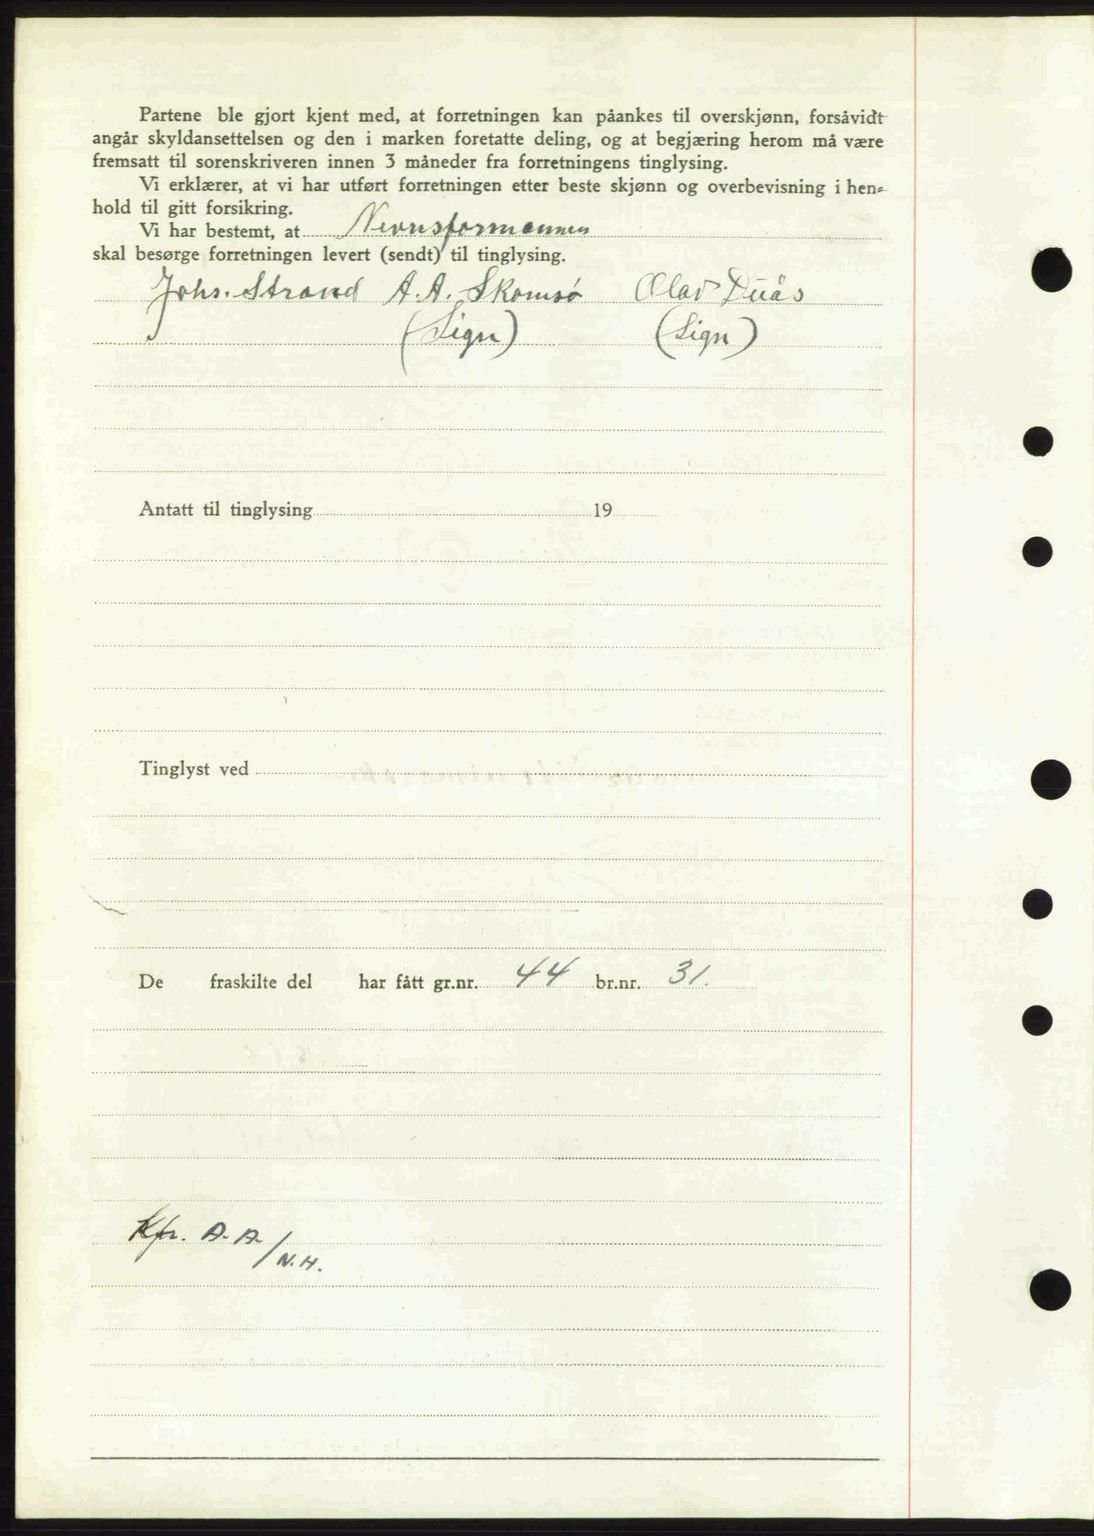 Partene ble gjort kjent med, at forretningen kan påankes til overskjønn, forsåvidt
angår skyldansettelsen og den i marken foretatte deling, og at begjæring herom må være
fremsatt til sorenskriveren innen 3 måneder fra forretningens tinglysing.
Vi erklærer, at vi har utført forretningen etter beste skjønn og overbevisning i hen-
hold til gitt forsikring.
Vi har bestemt, at Nevnsformannen
skal besørge forretningen levert (sendt) til tinglysing.
Johs. Strand A. A. Skomsø Olav Duås
(Sign) (Sign)
Antatt til tinglysing 19
Tinglyst ved
De fraskilte del har fått gr.nr. 44 br.nr. 31.
Kfr. A. A.
/N.H.